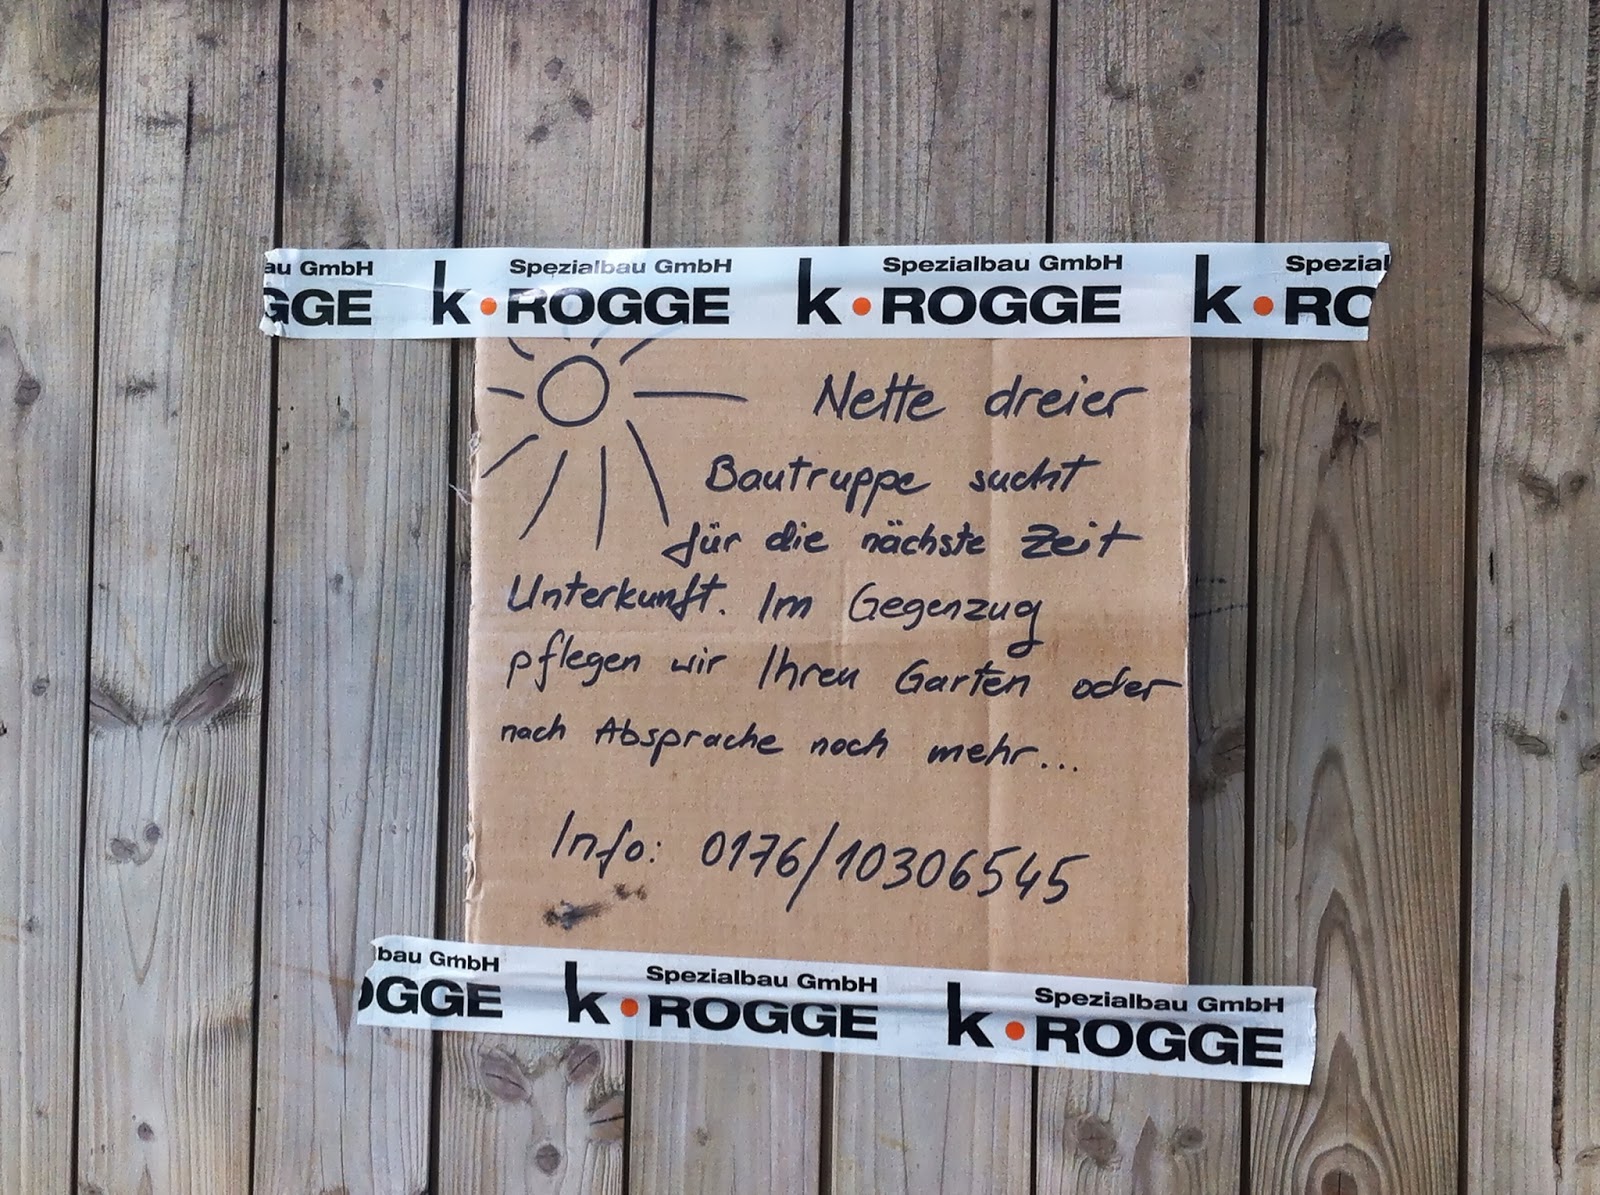 au GmbH Spezialbau GmbH Spezialbau GmbH Spezial
GGE k·ROGGE k·ROGGE k·RO
Nette dreier
Bautruppe sucht
für die nächste Zeit
Unterkunft. Im Gegenzug
pflegen wir Ihren Garten oder
nach Absprache noch mehr...
Info: 0176/10306545
bau GmbH Spezialbau GmbH Spezialbau GmbH
OGGE k·ROGGE k·ROGGE